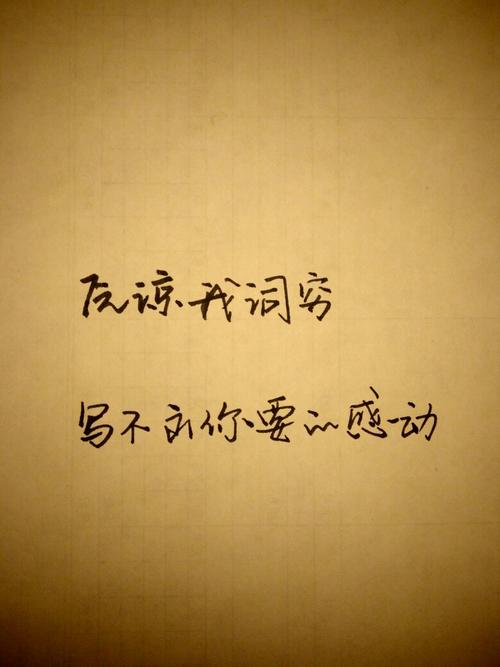 原谅我词穷
写不到你要的感动